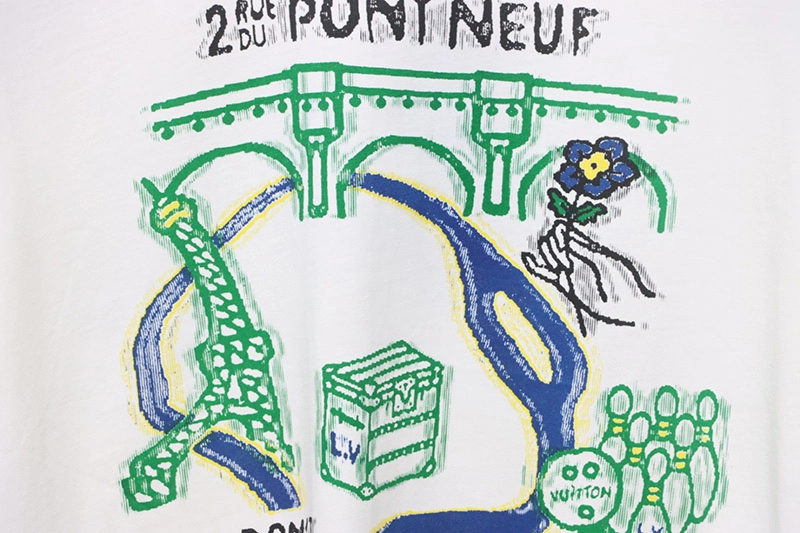 2 RUE DU PONT NEUF
L.V
VUITTON
LV
PONT